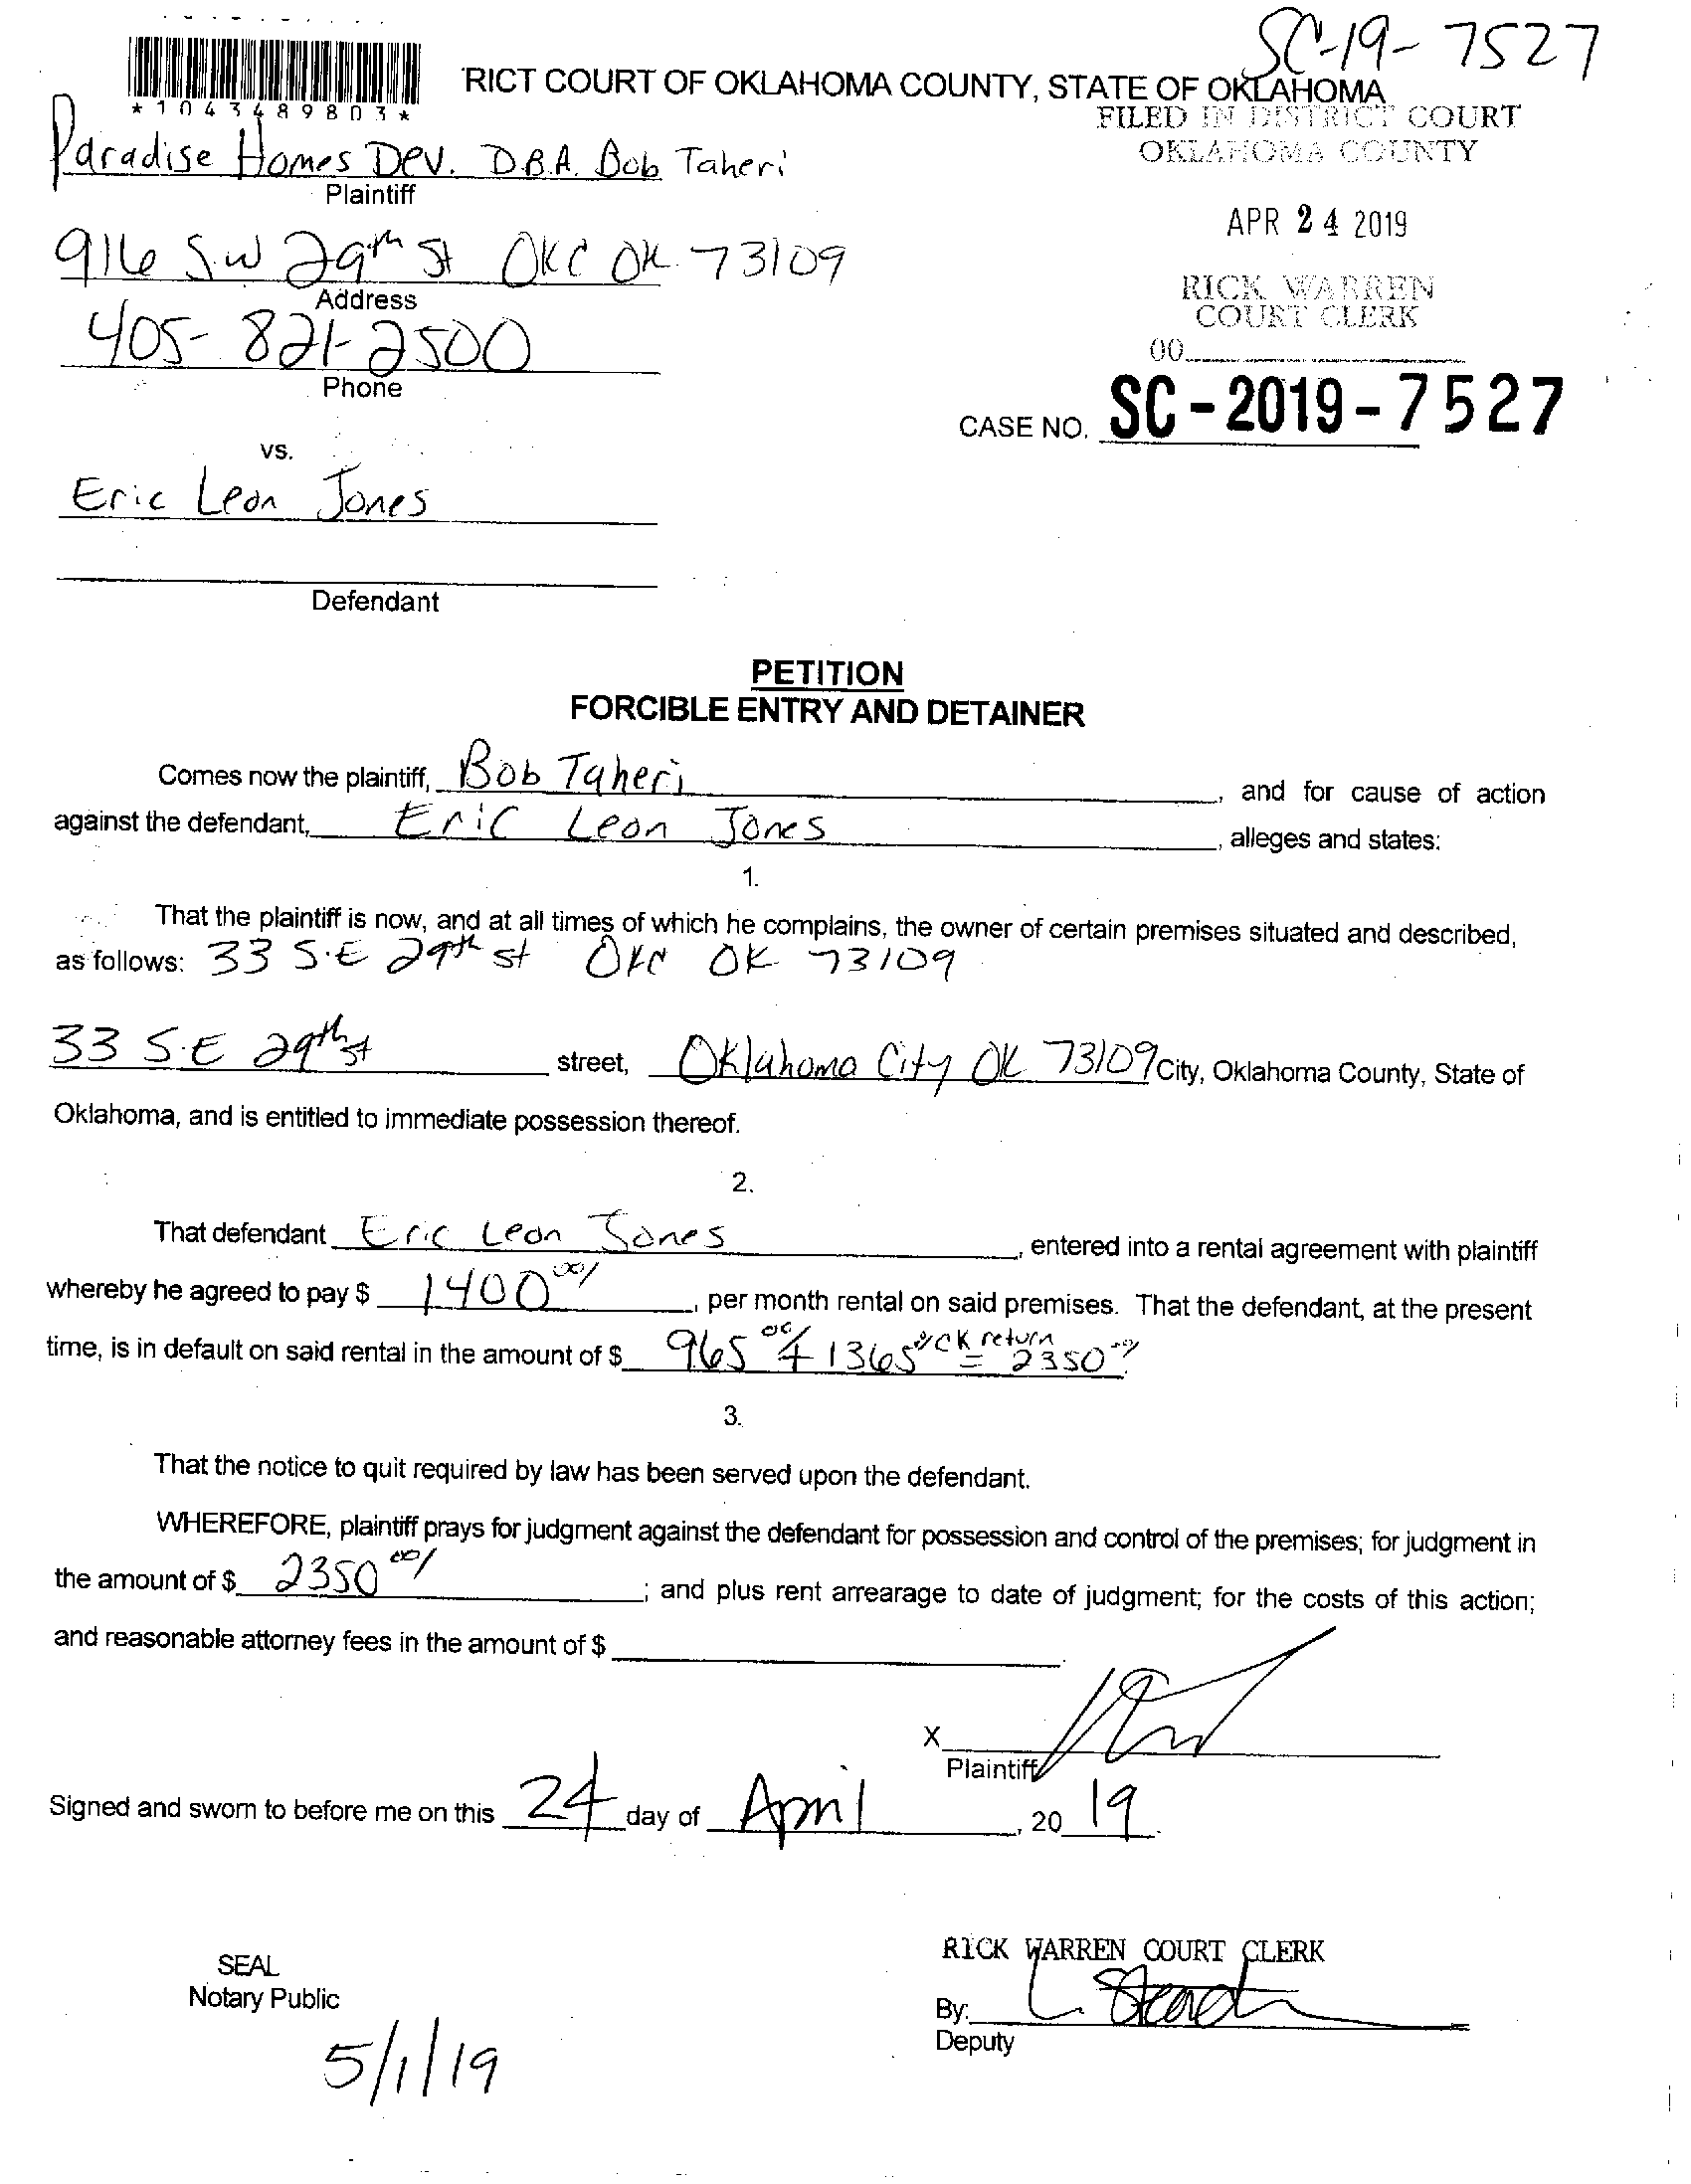 SC-19-7527
RICT COURT OF OKLAHOMA COUNTY, STATE OF OKLAHOMA
*1043489803*
FILED IN DISTRICT COURT
OKLAHOMA COUNTY
Paradise Homes Dev. D.B.A. Bob Taheri
Plaintiff
APR 24 2019
916 SW 29th St OKC OK 73109
Address
RICK WARREN
COURT CLERK
405-821-2500
Phone
00
CASE NO. SC-2019-7527
vs.
Eric Leon Jones
Defendant
PETITION
FORCIBLE ENTRY AND DETAINER
Comes now the plaintiff, Bob Taheri, and for cause of action
against the defendant, Eric Leon Jones, alleges and states:
1.
That the plaintiff is now, and at all times of which he complains, the owner of certain premises situated and described,
as follows: 33 S.E 29th st OKC OK 73109
33 S.E 29th st street, Oklahoma City OK 73109 City, Oklahoma County, State of
Oklahoma, and is entitled to immediate possession thereof.
2.
That defendant Eric Leon Jones, entered into a rental agreement with plaintiff
whereby he agreed to pay $ 1400 00/, per month rental on said premises. That the defendant, at the present
time, is in default on said rental in the amount of $ 965 00/ + 1365 CK return = 2350
3.
That the notice to quit required by law has been served upon the defendant.
WHEREFORE, plaintiff prays for judgment against the defendant for possession and control of the premises; for judgment in
the amount of $ 2350 00/; and plus rent arrearage to date of judgment; for the costs of this action;
and reasonable attorney fees in the amount of $
X
Plaintiff
Signed and sworn to before me on this 24 day of April, 20 19
RICK WARREN COURT CLERK
SEAL
Notary Public
By:
Deputy
5/1/19